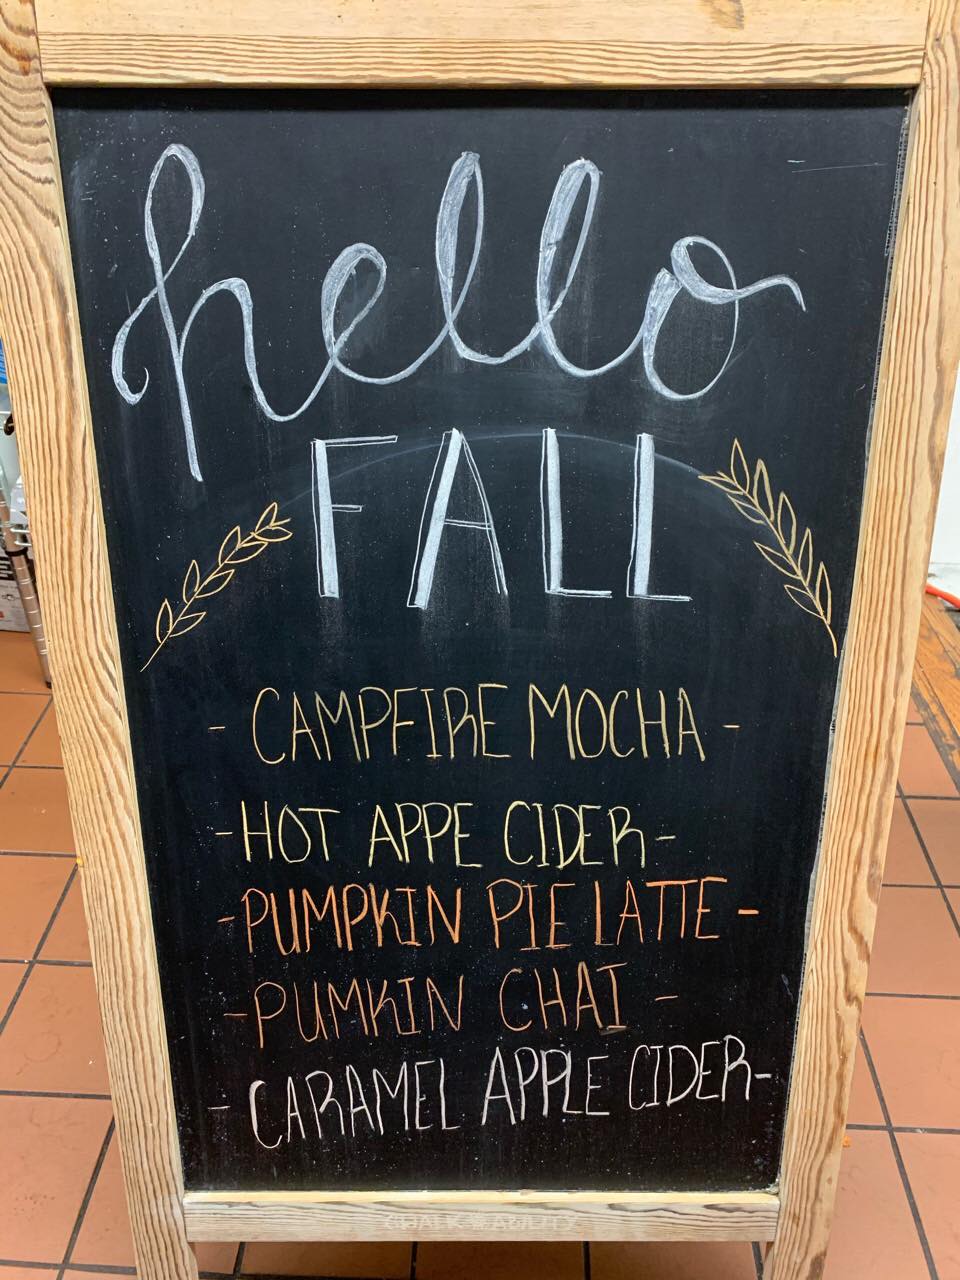 hello
FALL
- CAMPFIRE MOCHA -
- HOT APPE CIDER -
- PUMPKIN PIE LATTE -
- PUMKIN CHAI -
- CARAMEL APPLE CIDER -
CHALK ABILITY